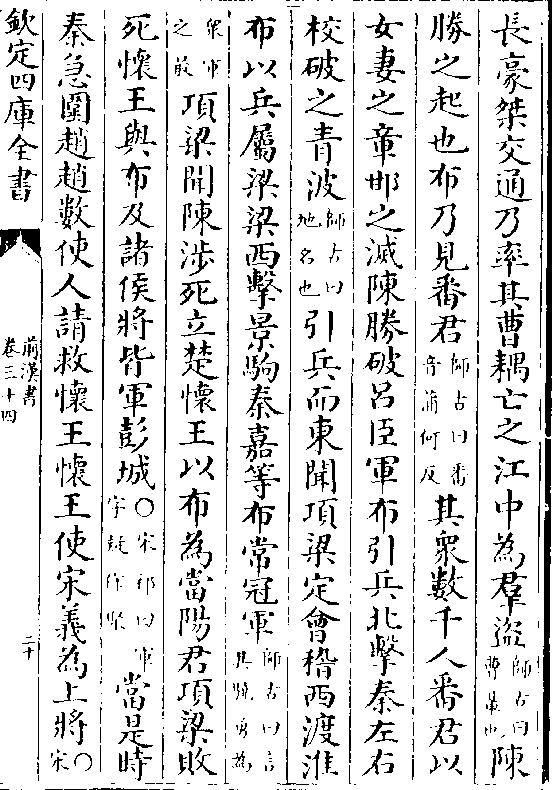 長豪桀交通乃率其曹耦亡之江中為羣盜師古曰曹輩也陳
勝之起也布乃見番君師古曰番音蒲何反其衆數千人番君以
女妻之章邯之滅陳勝破呂臣軍布引兵北擊秦左右
校破之青波師古曰地名也引兵而東聞項梁定會稽西渡淮
布以兵屬梁梁西擊景駒秦嘉等布常冠軍師古曰言其驍勇為
衆軍之最項梁聞陳涉死立楚懷王以布為當陽君項梁敗
死懷王與布及諸侯將皆軍彭城○宋祁曰軍字疑作聚當是時
秦急圍趙趙數使人請救懷王懷王使宋義為上將○宋
欽定四庫全書
前漢書
卷三十四
二十